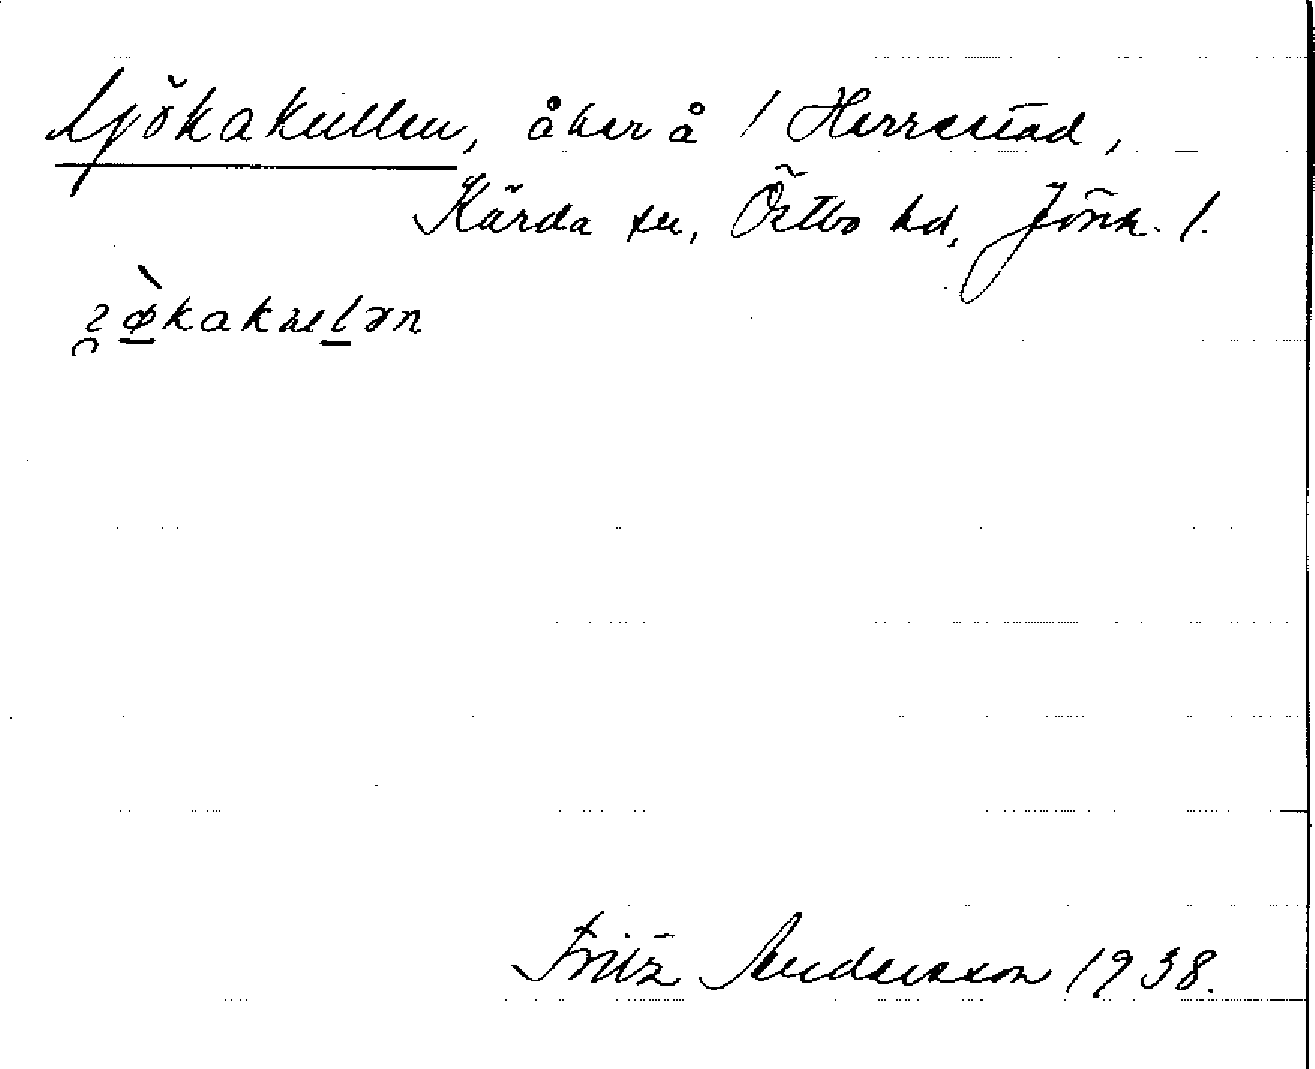 Gjökakullen, åker å 1 Herrestad,
Kärda sn, Östbo hd, Jönk. l.
Fritz Andersson 1938.